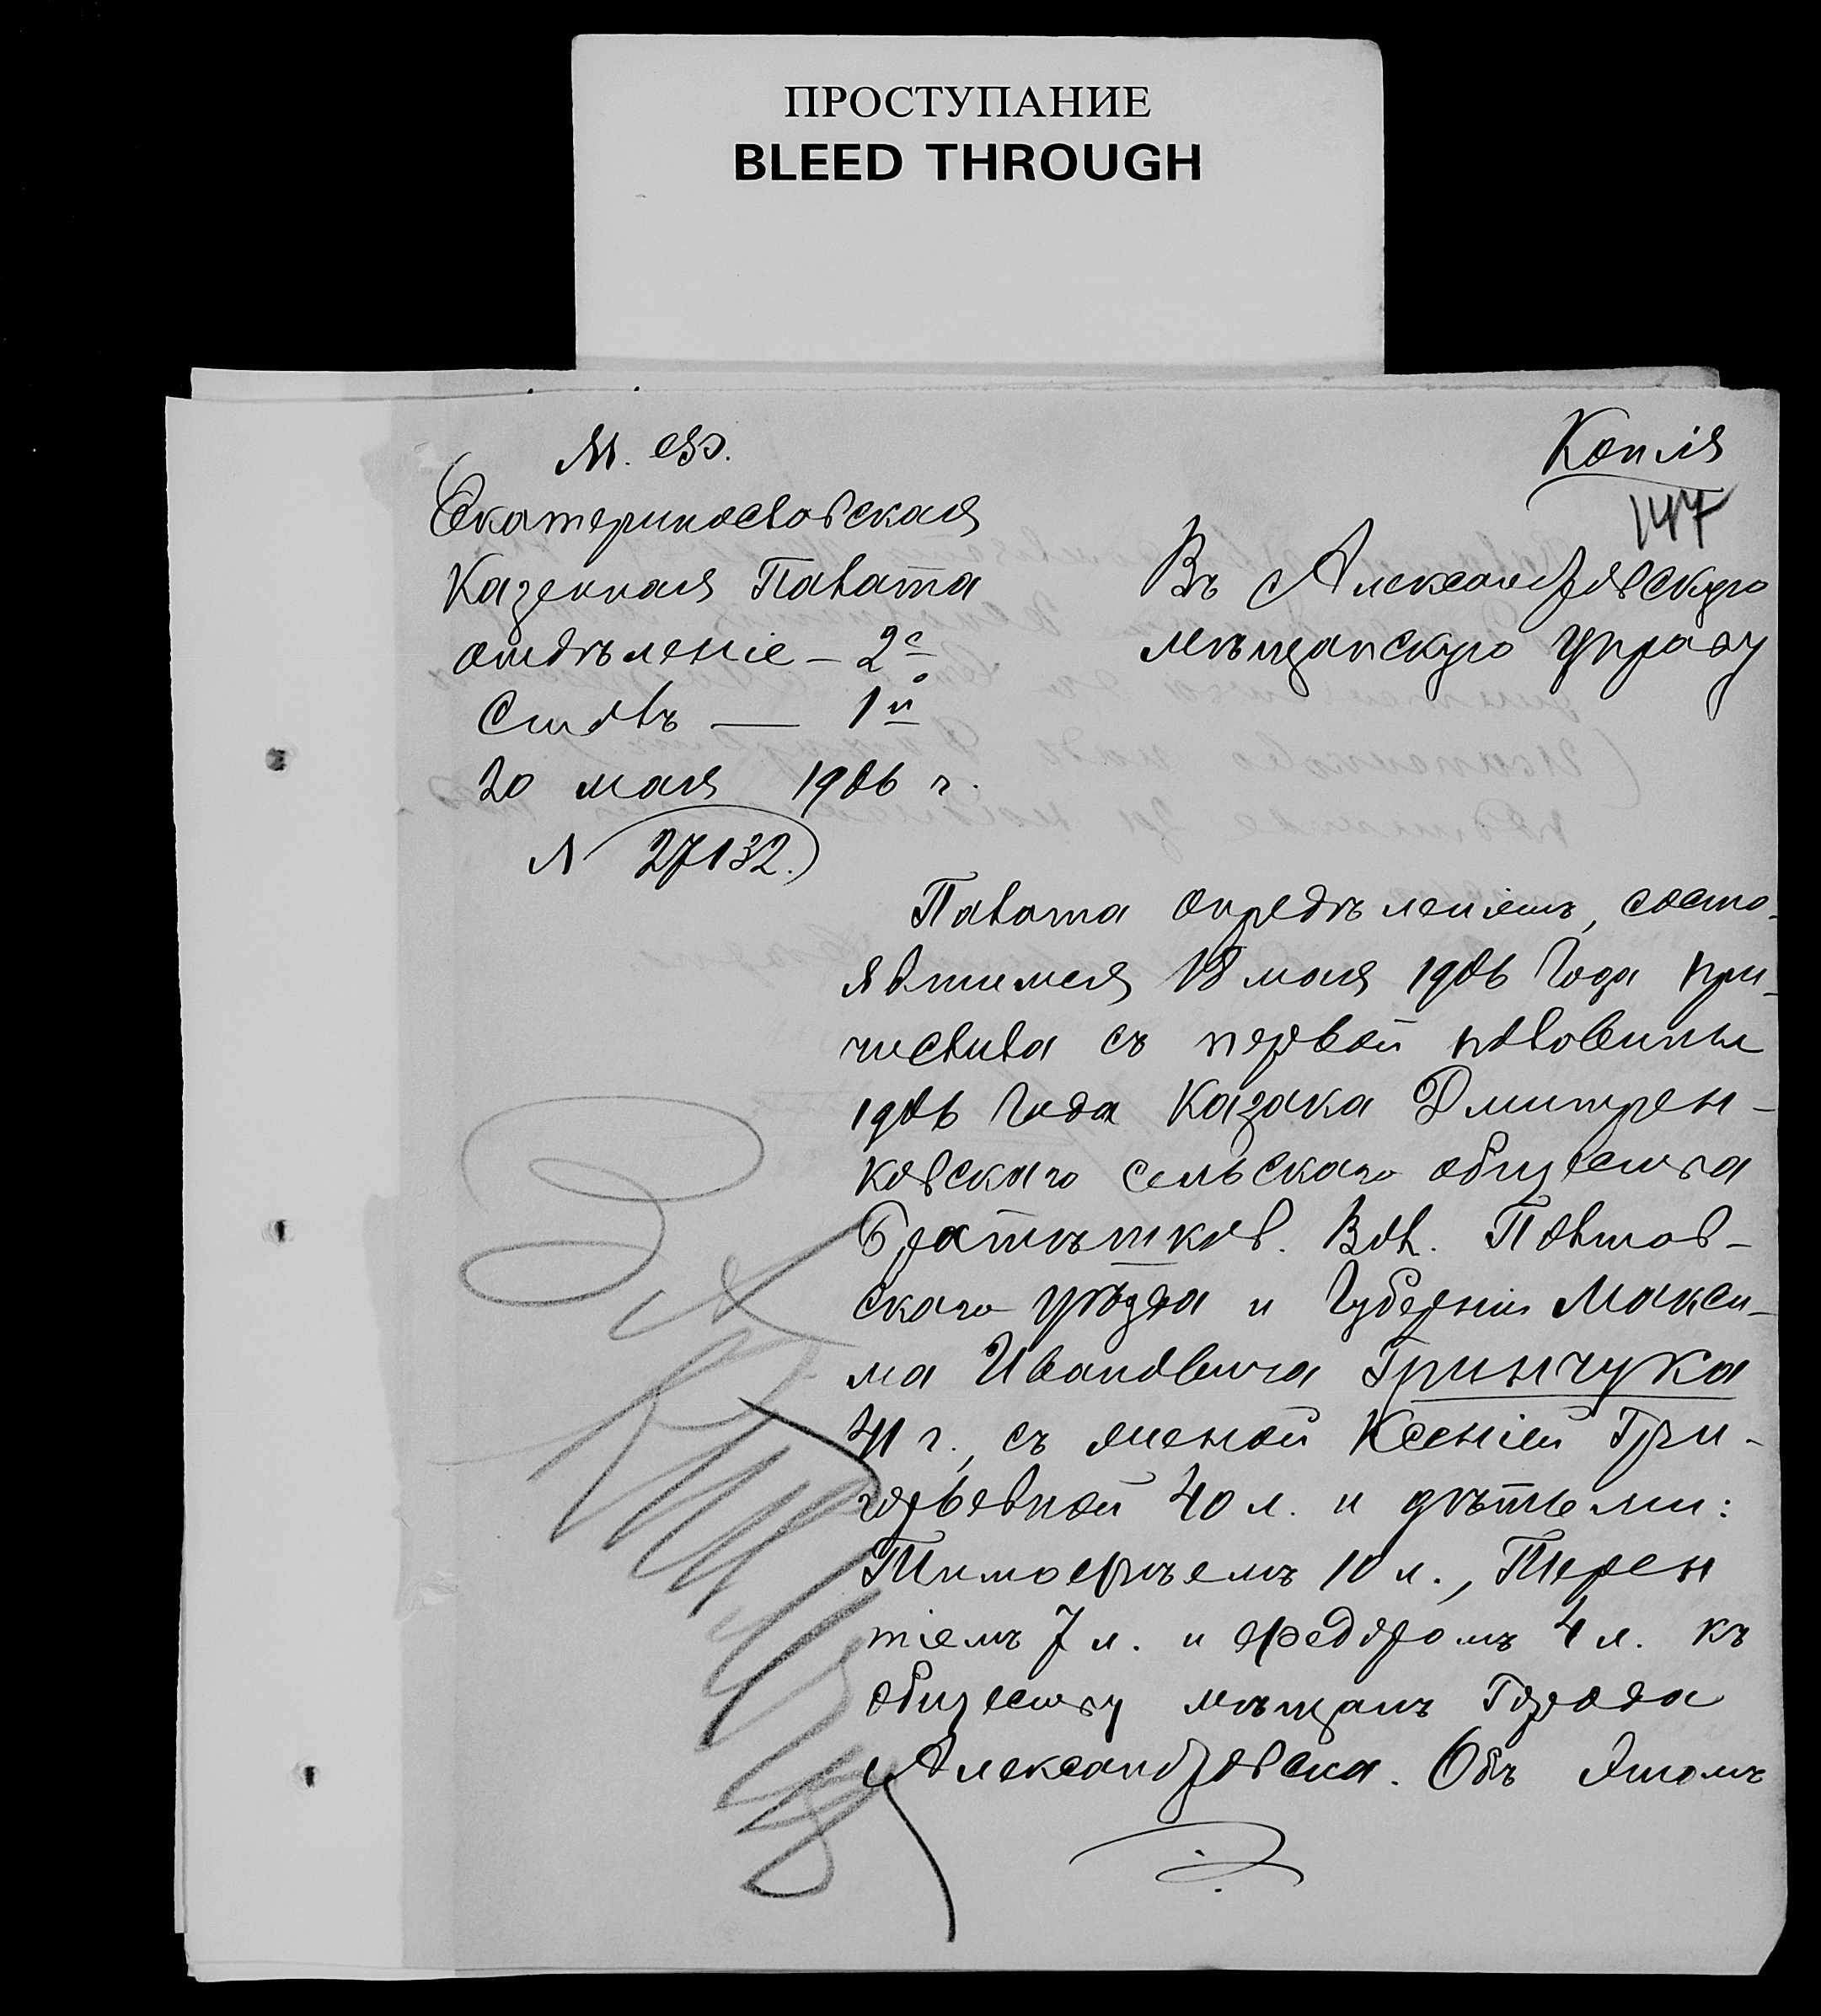 ПРОСТУПАНИЕ
BLEED THROUGH
М. Ф.
Екатеринославская
Казенная Палата
отдѣленіе – 2е
Столъ — 1й
20 мая 1906 г.
№ 27132.
Копія
147
Въ Александровскую
мѣщанскую управу
Палата опредѣленіемъ, состо-
явшимся 18 мая 1906 года при-
числила съ первой половины
1906 года казака Дмитрен-
ковскаго сельскаго общества
Братѣшков. Вол. Полтав-
скаго уѣзда и губерніи Макси-
ма Ивановича Гринчука
41 г., съ женой Ксеніей Гри-
горьевной 40 л. и дѣтьми:
Тимофѣемъ 10 л., Терен
тіемъ 7 л. и Федоромъ 4 л. къ
обществу мѣщанъ города
Александровска. Объ этомъ